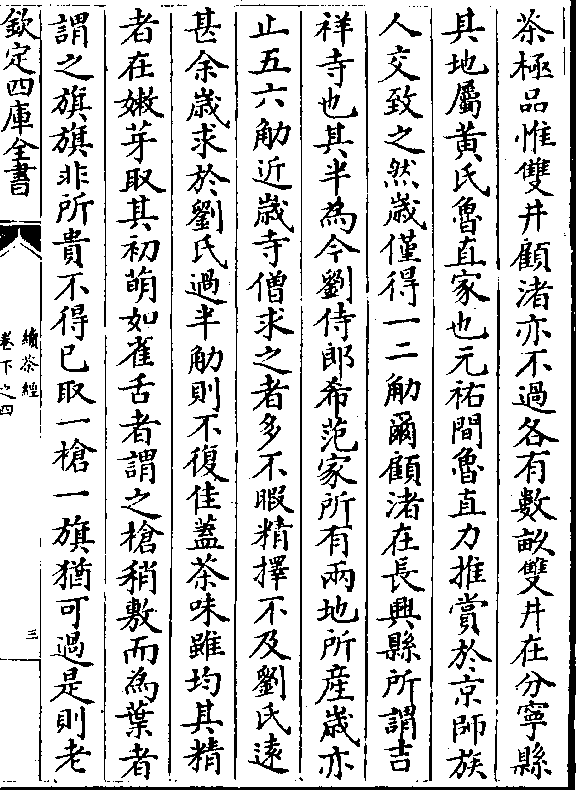 茶極品惟雙井顧渚亦不過各有數畝雙井在分寧縣
其地屬黄氏魯直家也元祐間魯直力推賞於京師族
人交致之然歳僅得一二觔爾顧渚在長興縣所謂吉
祥寺也其半為今劉侍郎希范家所有兩地所産歳亦
止五六觔近歳寺僧求之者多不暇精擇不及劉氏遠
甚余歳求於劉氏過半觔則不復佳蓋茶味雖均其精
者在嫩芽取其初萌如雀舌者謂之槍稍敷而為葉者
謂之旗旗非所貴不得已取一槍一旗猶可過是則老
欽定四庫全書
續茶經
卷下之四
三